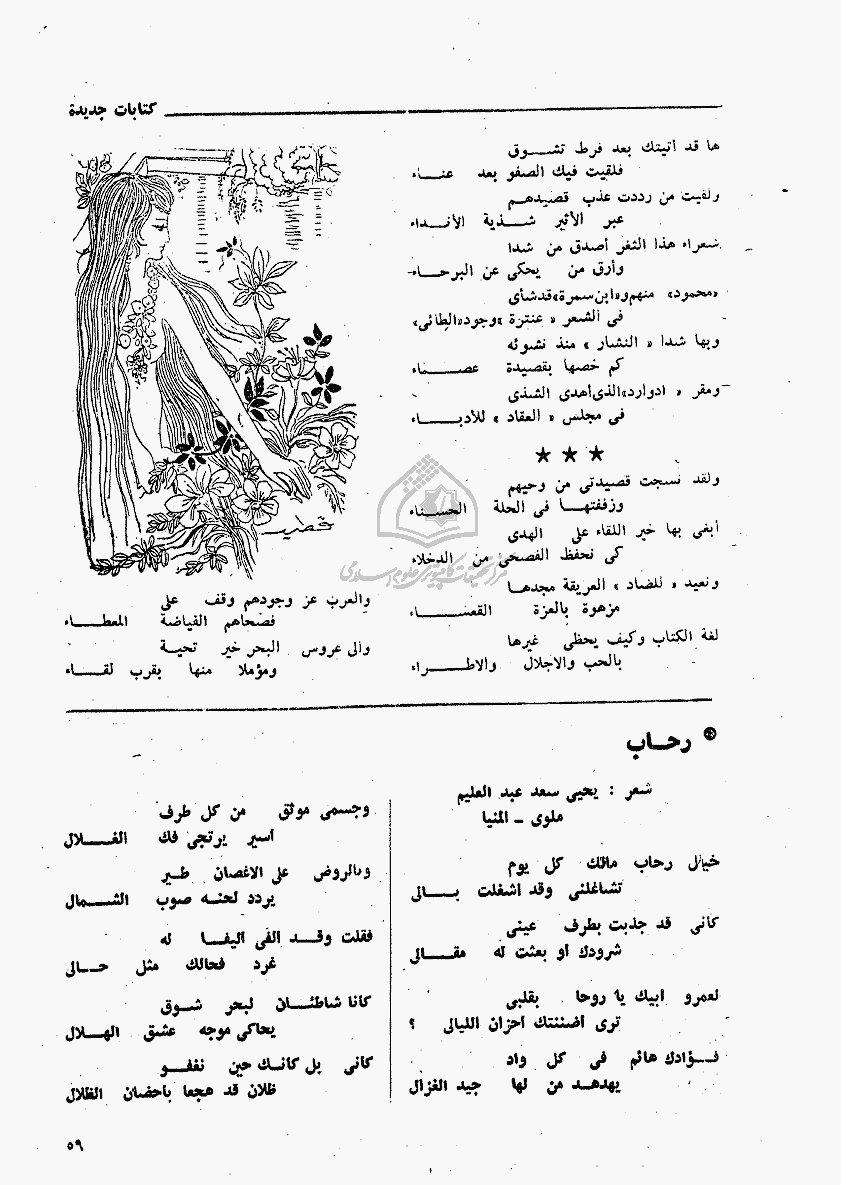 كتابات جديدة
ها قد أتيتك بعد فرط تشـــوق
فلقيت فيك الصفو بعد عنـــاء
ولقيت من رددت عذب قصيدهـم
عبر الأثير شـــذية الأنـــداء
شعراء هذا الثغر أصدق من شدا
وأرق من يحكى عن البرحـاء
«محمود» منهم و«ابن سمرة» قد شأى
فى الشعر « عنترة » وجود «الطائى»
وبها شدا « النشار » منذ نشوئه
كم خصها بقصيدة عصـــماء
ومقر « ادوارد» الذى أهدى الشذى
فى مجلس « العقاد » للأدبـــاء
★ ★ ★
ولقد نسجت قصيدتى من وحيهم
وزففتهـــا فى الحلة الحسـناء
أبغى بها خير اللقاء على الهدى
كى نحفظ الفصحى من الدخلاء
ونعيد « للضاد » العريقة مجدهـا
مزهوة بالعزة القعســـاء
لغة الكتاب وكيف يحظى غيرها
بالحب والاجلال والاطـــراء
والعرب عز وجودهم وقف على
فصحاهم الفياضة المعطـــاء
والى عروس البحر خير تحيـة
ومؤملا منها بقرب لقـــاء
خضير
مركز تحقيقات كامپيوترى علوم اسلامى
رحـاب
شعر : يحيى سعد عبد العليم
ملوى ـ المنيا
خيال رحاب مالك كل يوم
تشاغلنى وقد اشغلت بـــالى
كانى قد جذبت بطرف عينى
شرودك او بعثت له مقـــالى
لعمرو ابيك يا روحا بقلبى
ترى اضنتك احزان الليالى ؟
فـؤادك هائم فى كل واد
يهدهـد من لها جيد الغزال
وجسمى موثق من كل طرف
اسير يرتجى فك الغـــلال
وبالروض على الاغصان طـير
يردد لحنـه صوب الشـــمال
فقلت وقـد الفى اليفـا له
غرد فحالك مثل حـــالى
كانا شاطئـان لبحر شـوق
يحاكى موجه عشق الهـــلال
كانى بل كانـك حين نغفـو
ظلان قد هجعا باحضان الظلال
٥٩